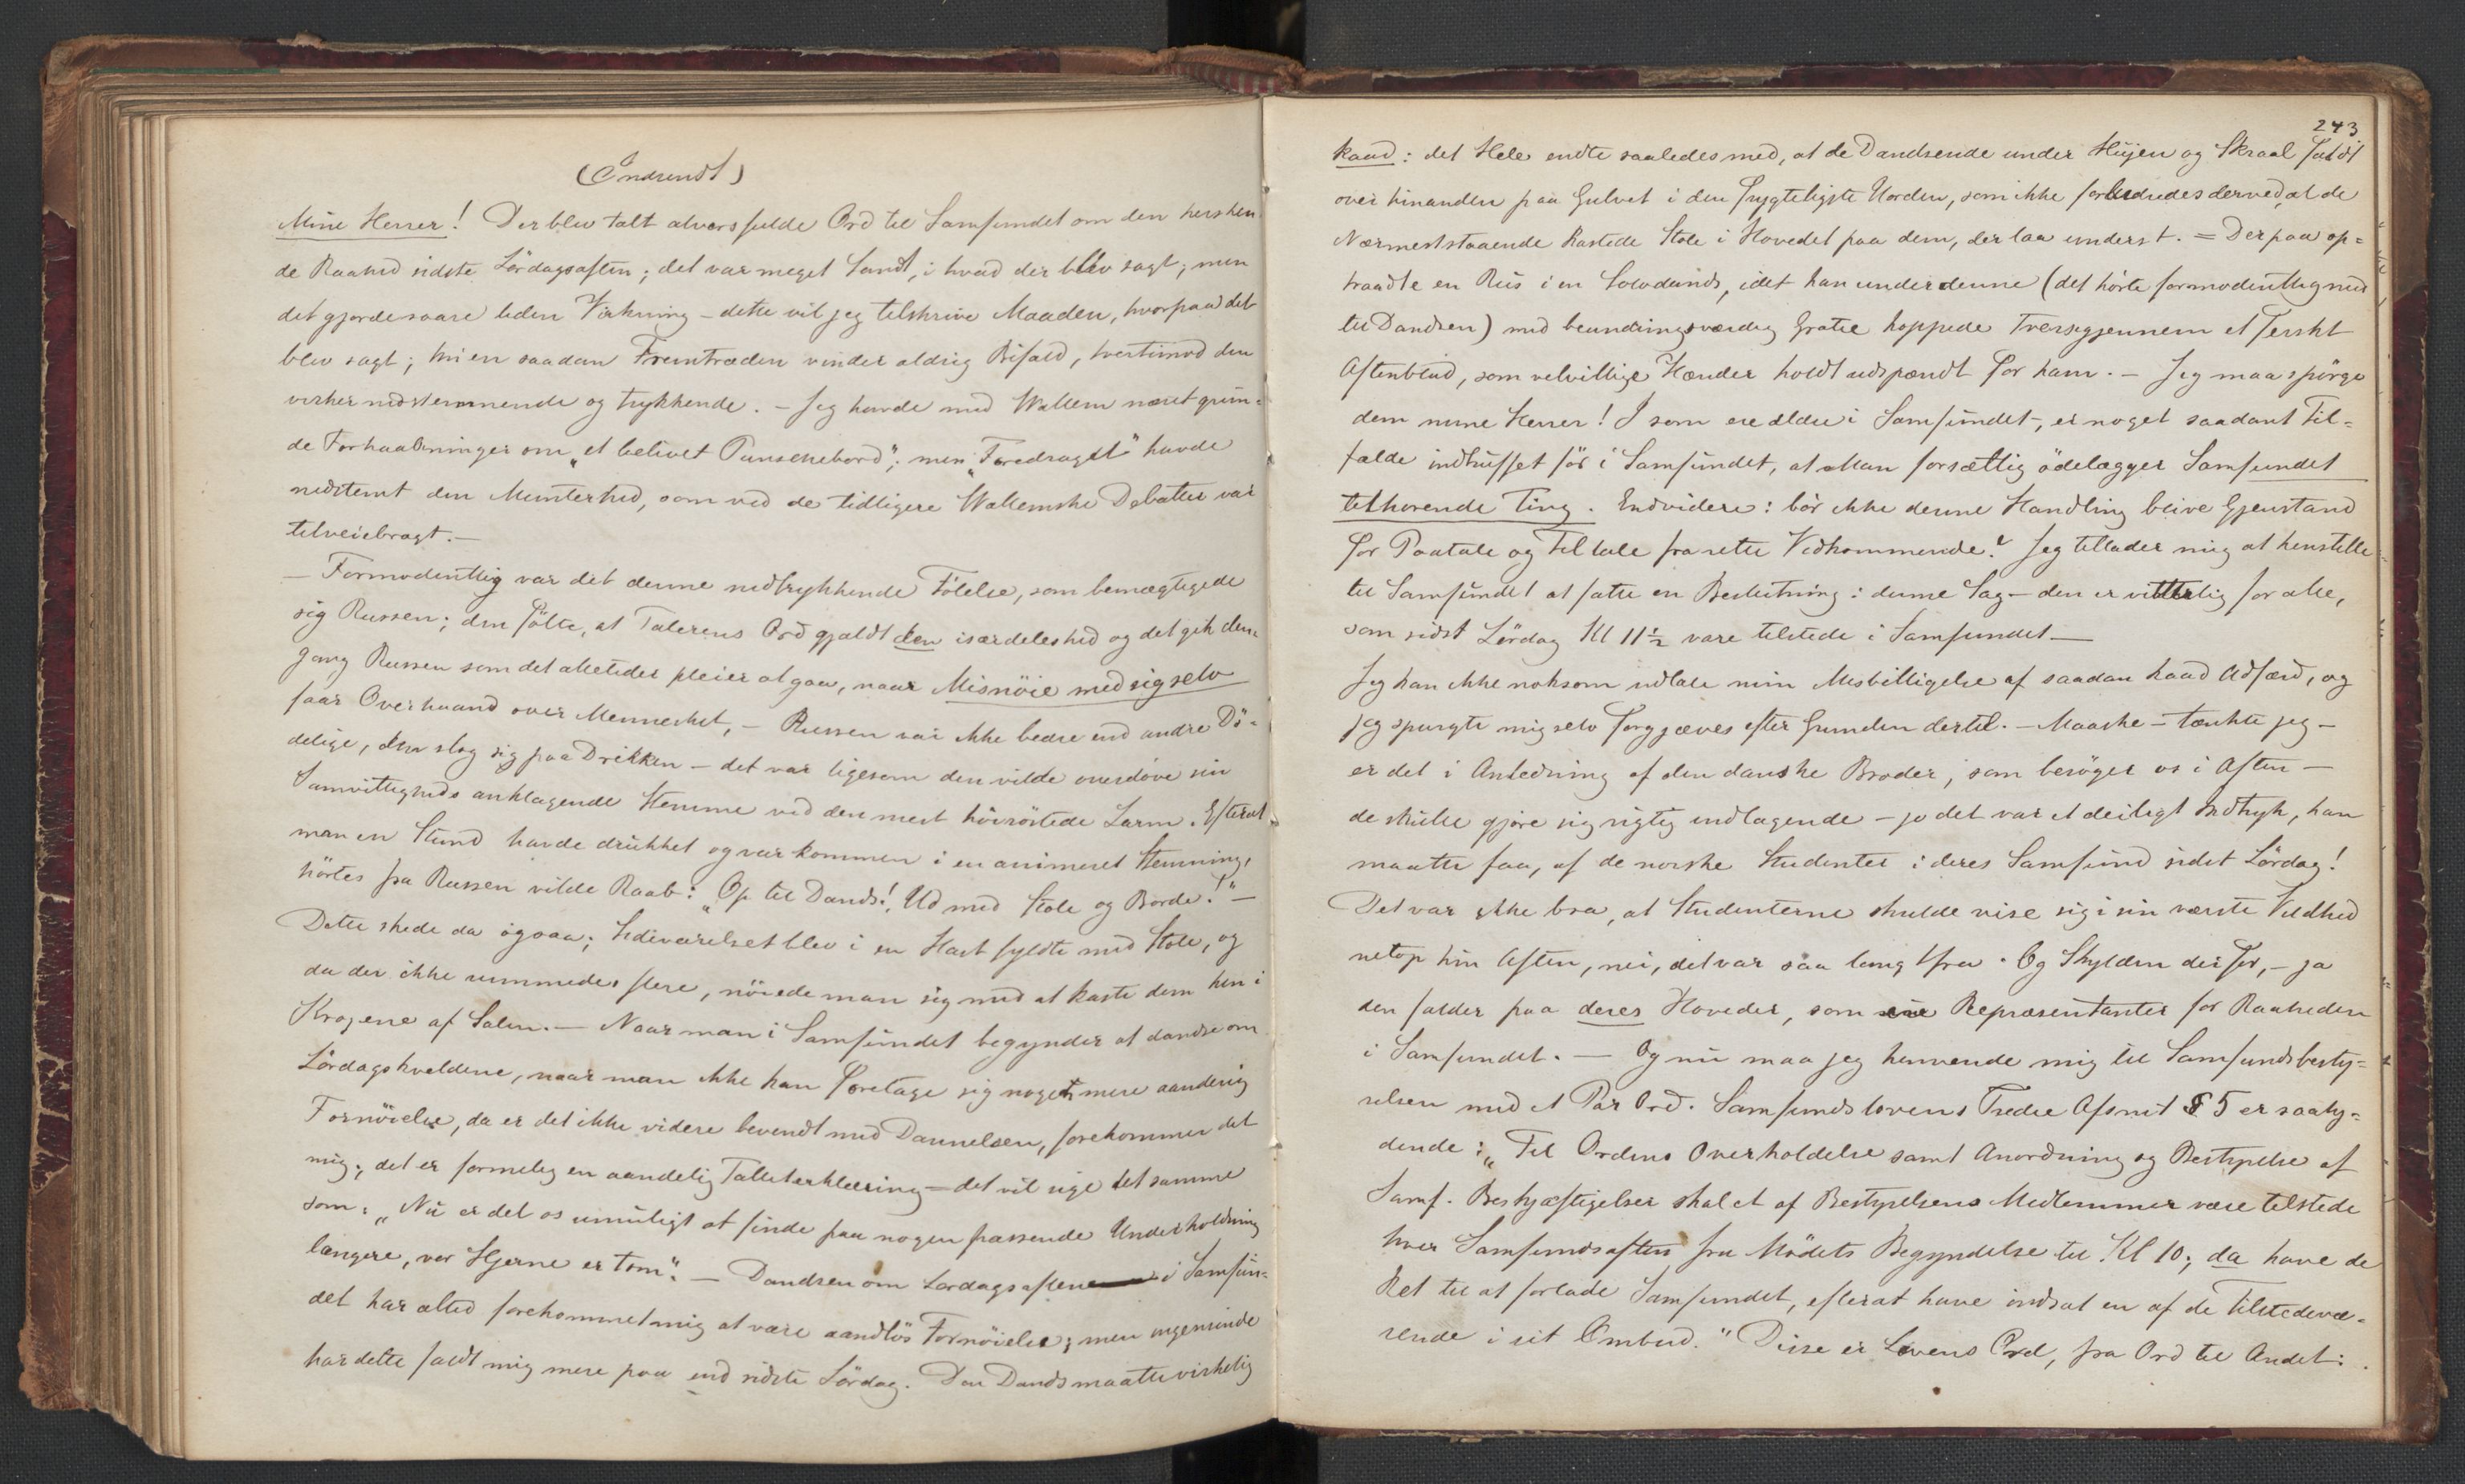 (Indsendt)
Mine Herrer! Der blev talt alvorsfulde Ord til Samfundet om den hersken-
de Raahed sidste Lördagsaften; det var meget Sandt, i hvad der blev sagt; men
det gjorde saare liden Virkning – dette vil jeg tilskrive Maaden, hvorpaa det
blev sagt; thi en saadan Fremtræden vinder aldrig Bifald, tvertimod den
virker nedstemmende og trykkende. – Jeg havde med Wallem næret grun-
de Forhaabninger om „et belivet Punschebord"; men „Foredraget" havde
nedstemt den Munterhed, som ved de tidligere Wallemske Debatter var
tilveiebragt. –
– Formodentlig var det denne nedtrykkende Fölelse, som bemægtigede
sig Russen; den fölte, at Talerens Ord gjaldt den isærdeleshed og det gik den-
gang Russen som det alletider pleier at gaa, naar Misnöie med sig selv
faar Overhaand over Mennesket, – Russen var ikke bedre end andre Dö-
delige, den slog sig paa Drikken – det var ligesom den vilde overdöve sin
Samvittigheds anklagende Stemme ved den mest höiröstede Larm. Efterat
man en Stund havde drukket og var kommen i en animeret Stemning,
hörtes fra Russen vilde Raab: „Op til Dands! Ud med Stole og Borde!" –
Dette skede da ogsaa; Sideværelset blev i en Hast fyldte med Stole, og
da der ikke rummedes flere, nöiede man sig med at kaste dem hen i
Krogene af Salen. – Naar man i Samfundet begynder at dandse om
Lördagskveldene, naar man ikke kan foretage sig noget mere aanderig
Fornöielse, da er det ikke videre bevendt med Dannelsen, forekommer det
mig; det er formelig en aandelig Falliterklæring – det vil sige det samme
som: „Nu er det os umuligt at finde paa nogen passende Underholdning
længere, vor Hjerne er tom". – Dandsen om Lördagsaftene i Samfun-
det har altid forekommet mig at være aandlös Fornöielse; men ingensinde
har dette faldt mig mere paa end sidste Lördag. Den Dands maatte virkelig
243
kaad: det Hele endte saaledes med, at de Dandsende under Hujen og Skraal faldt
over hinanden paa Gulvet i den frygteligste Uorden, som ikke forbedredes derved, at de
Nærmeststaaende kastede Stole i Hovedet paa dem, der laa underst. = Derpaa op-
traadte en Rus i en Solodands, idet han under denne (det hörte formodentlig med
til Dandsen) med beundringsværdig Gratie hoppede tversgjennem et ferskt
Aftenblad, som velvillige Hænder holdt udspændt for ham. – Jeg maa spörge
dem mine Herrer! I som ere ældre i Samfundet, er noget saadant Til-
fælde indtruffet för i Samfundet, at Man forsætlig ödelægger Samfundet
tilhörende Ting. Endvidere: bör ikke denne Handling blive Gjenstand
for Paatale og Tiltale fra rette Vedkommende? Jeg tillader mig at henstille
til Samfundet at fatte en Beslutning i denne Sag – den er vitterlig for alle,
som sidst Lördag Kl 11½ vare tilstede i Samfundet –
Jeg kan ikke noksom udtale min Misbilligelse af saadan kaad Adfærd, og
jeg spurgte mig selv forgjæves efter Grunden dertil. – Maaske – tænkte jeg –
er det i Anledning af den danske Broder, som besöger os i Aften –
de skulle gjöre sig rigtig indtagende – jo det var et deiligt Indtryk, han
maatte faa, af de norske Studenter i deres Samfund sidst Lördag!
Det var ikke bra, at Studenterne skulde vise sig i sin værste Vildhed
netop hin Aften, nei, det var saa langt fra. Og Skylden derfor, – ja
den falder paa deres Hoveder, som ere Repræsentanter for Raaheden
i Samfundet. – Og nu maa jeg henvende mig til Samfundsbesty-
relsen med et Par Ord. Samfundslovens Tredie Afsnit § 5 er saaly-
dende: „Til Ordens Overholdelse samt Anordning og Bestyrelse af
Samf. Beskjæftigelser skal et af Bestyrelsens Medlemmer være tilstede
hver Samfundsaften fra Mödets Begyndelse til Kl 10; da have de
Ret til at forlade Samfundet, efterat have indsat en af de Tilstedevæ-
rende i sit Ombud." Disse er Lovens Ord, fra Ord til Andet: